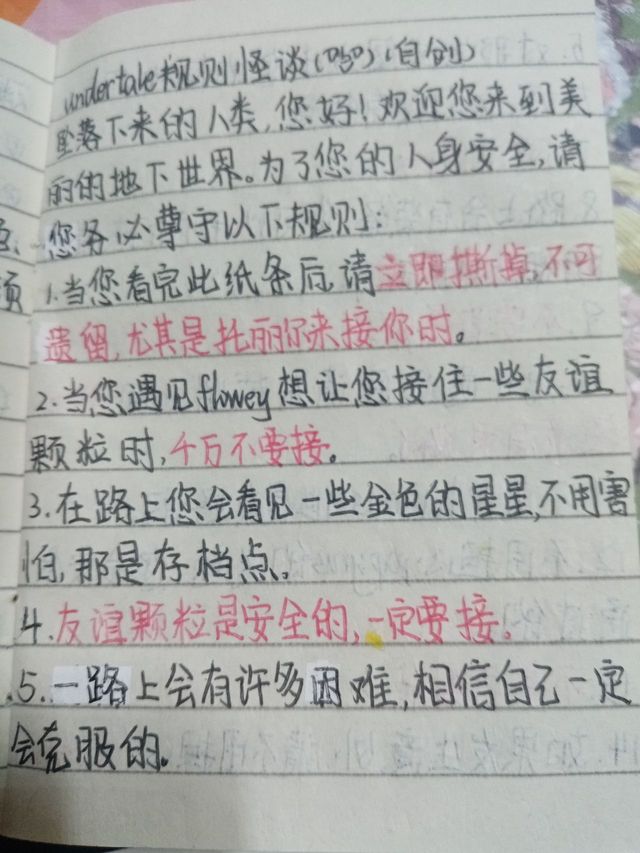 undertale规则怪谈(自创)
坠落下来的人类,您好!欢迎您来到美
丽的地下世界。为了您的人身安全,请
您务必尊守以下规则:
1.当您看完此纸条后,请立即撕掉,不可
遗留,尤其是托丽尔来接你时。
2.当您遇见flowey想让您接住一些友谊
颗粒时,千万不要接。
3.在路上您会看见一些金色的星星,不用害
怕,那是存档点。
4.友谊颗粒是安全的,一定要接。
5.一路上会有许多困难,相信自己一定
会克服的。